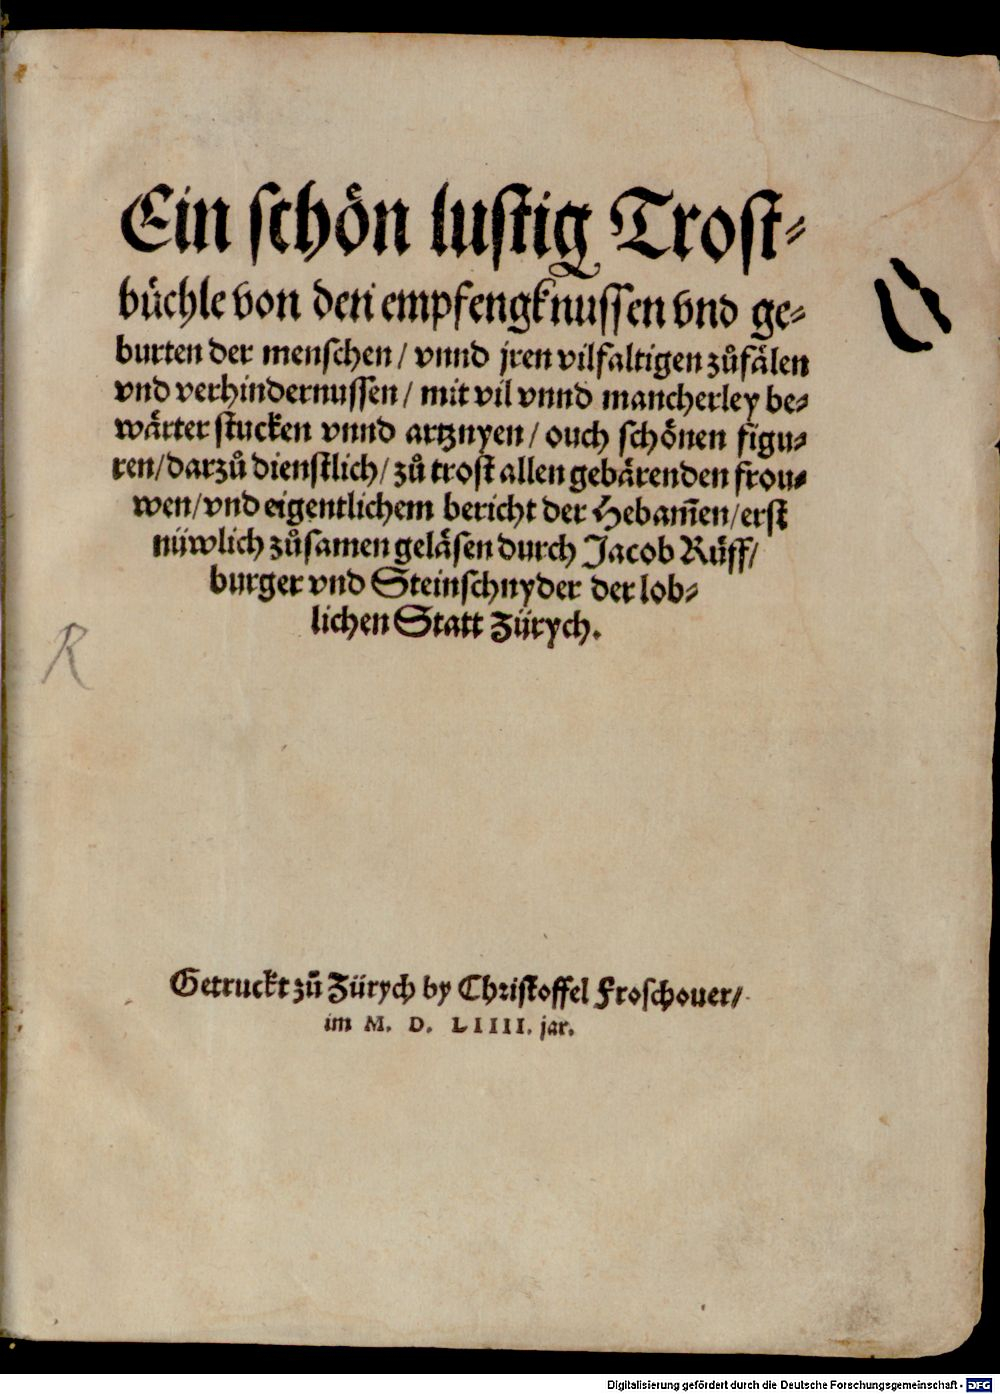 Ein schön lustig Trost⸗
büchle von den empfengknussen vnd ge⸗
burten der menschen / vnnd jren vilfaltigen zůfälen
vnd verhindernussen / mit vil vnnd mancherley be⸗
wärter stucken vnnd artznyen / ouch schönen figu⸗
ren / darzů dienstlich / zů trost allen gebärenden frou⸗
wen / vnd eigentlichem bericht der Hebam̄en / erst
nüwlich zůsamen geläsen durch Jacob Rüff /
burger vnd Steinschnyder der lob⸗
lichen Statt Zürych.
R
Getruckt zů Zürych by Christoffel Froschouer /
im M. D. LIIII. jar.
Digitalisierung gefördert durch die Deutsche Forschungsgemeinschaft - DFG